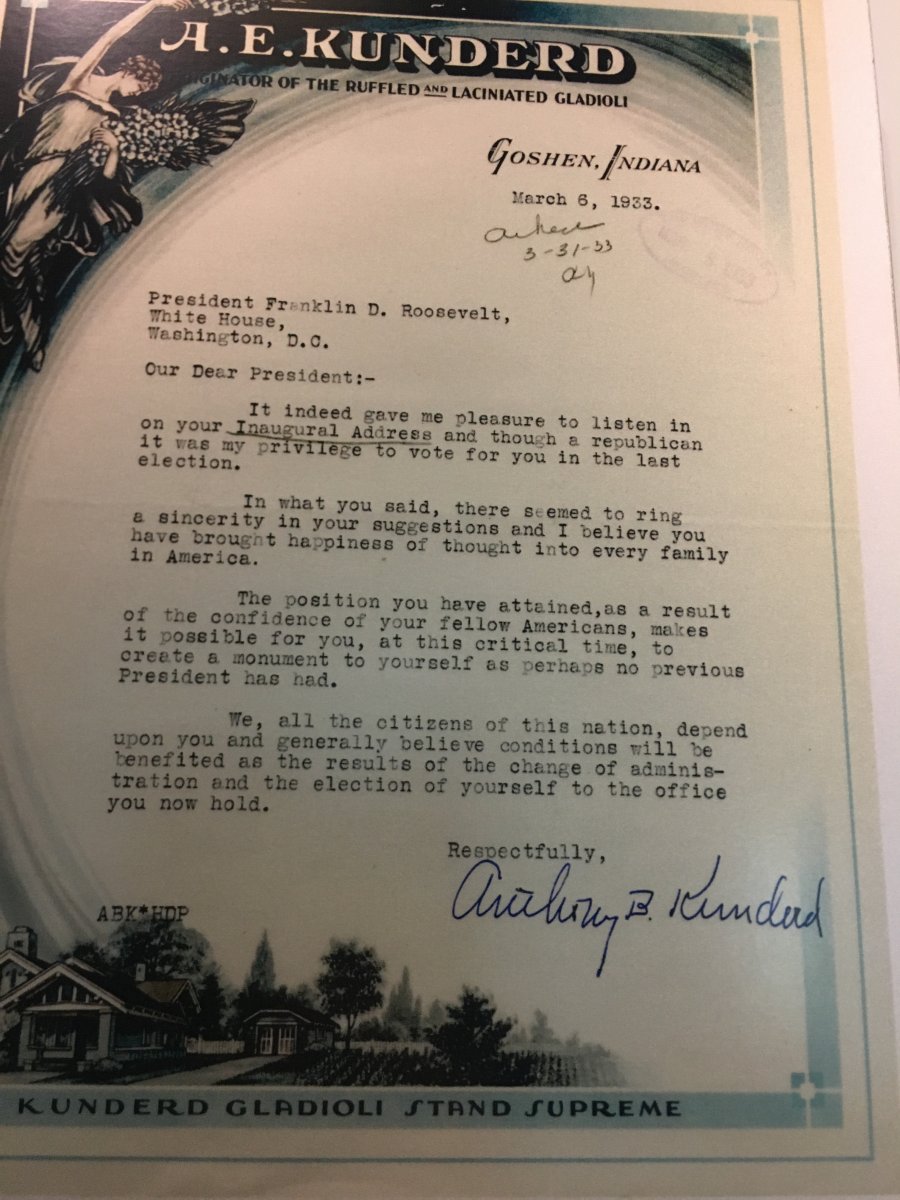 A.E. KUNDERD
ORIGINATOR OF THE RUFFLED AND LACINIATED GLADIOLI
GOSHEN, INDIANA
March 6, 1933.
3-31-33
President Franklin D. Roosevelt,
White House,
Washington, D.C.
Our Dear President:-
It indeed gave me pleasure to listen in
on your Inaugural Address and though a republican
it was my privilege to vote for you in the last
election.
In what you said, there seemed to ring
a sincerity in your suggestions and I believe you
have brought happiness of thought into every family
in America.
The position you have attained,as a result
of the confidence of your fellow Americans, makes
it possible for you, at this critical time, to
create a monument to yourself as perhaps no previous
President has had.
We, all the citizens of this nation, depend
upon you and generally believe conditions will be
benefited as the results of the change of adminis-
tration and the election of yourself to the office
you now hold.
Respectfully,
Anthony B. Kunderd
ABK*HDP
KUNDERD GLADIOLI STAND SUPREME